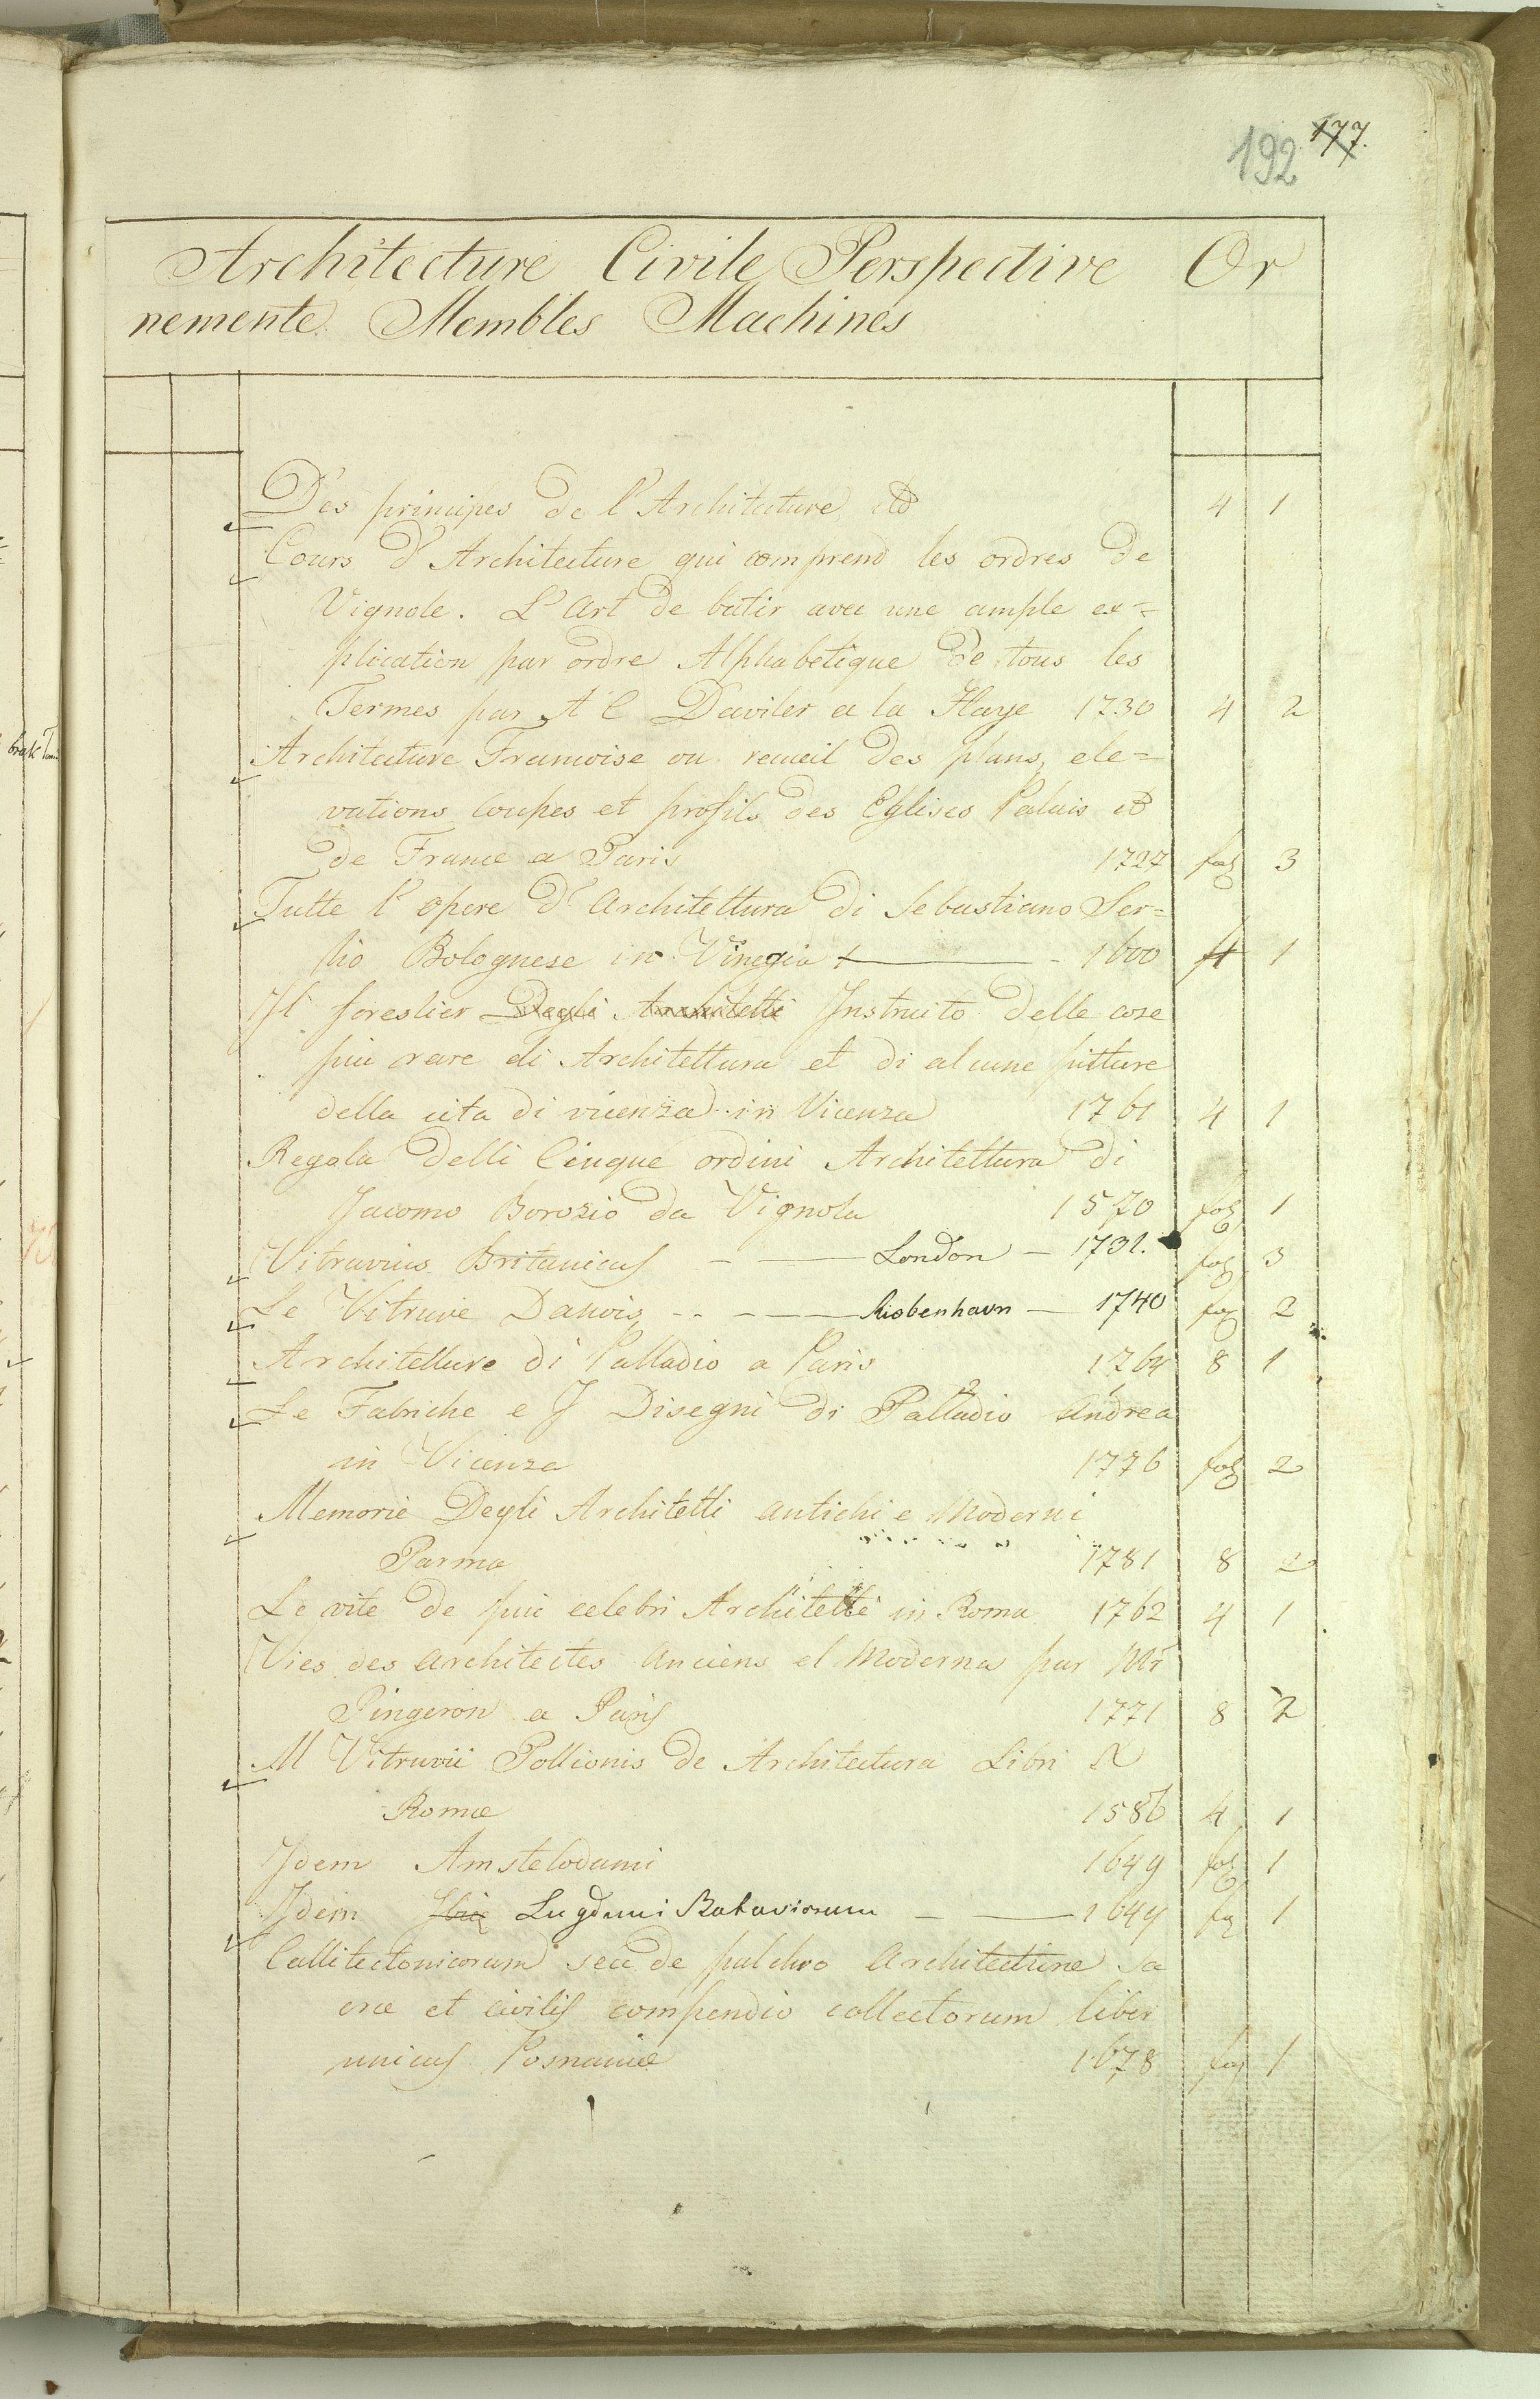 192 177.
Architecture Civile Perspective Or
nemente Membles Machines
Des principes de l'Architecture etc 4 1
Cours d'Architecture qui comprend les ordres de
Vignole. L'Art de batir avec une ample ex=
plication par ordre Alphabetique de tous les
Termes par A C Daviler a la Haye 1730 4 2
Architecture Francoise ou recueil des plans, ele=
vations Coupes et profils des Eglises Palais et
de France a Paris 1727 fol 3
Tutte l'opere d'Architettura di Sebastiano Ser=
lio Bolognese in Vinegia 1600 4 1
Il forestier Degli Architetti Instruito delle cose
piu rare di Architettura et di alcune pitture
della cita di vicenza in Vicenza 1761 4 1
Regola delli Cinque ordini Architettura di
Jacomo Borozio da Vignola 1570 fol 1
Vitruvius Britanicus London 1731. fol 3
Le Vitruve Danois Kiobenhavn 1740 fol 2
Architetture di Palladio a Paris 1764 8 1
Le Fabriche e I Disegni di Palladio Andrea
in Vicenza 1776 fol 2
Memorie Degli Architetti antichi e Moderni
Parma 1781 8 2
Le vite de piu celebri Architetti in Roma 1762 4 1
Vies des architectes Anciens et Moderna par Mr
Pingeron a Paris 1771 8 2
M Vitruvii Pollionis de Architectura Libri X
Romæ 1586 4 1
Idem Amstelodami 1649 fol 1
Idem Ibid Lugduni Batavorum 1649 fol 1
Callitectonicorum seu de pulchro Architecturæ Sa
cræ et civilis compendio collectorum liber
unicus Posnaniæ 1678 fol 1